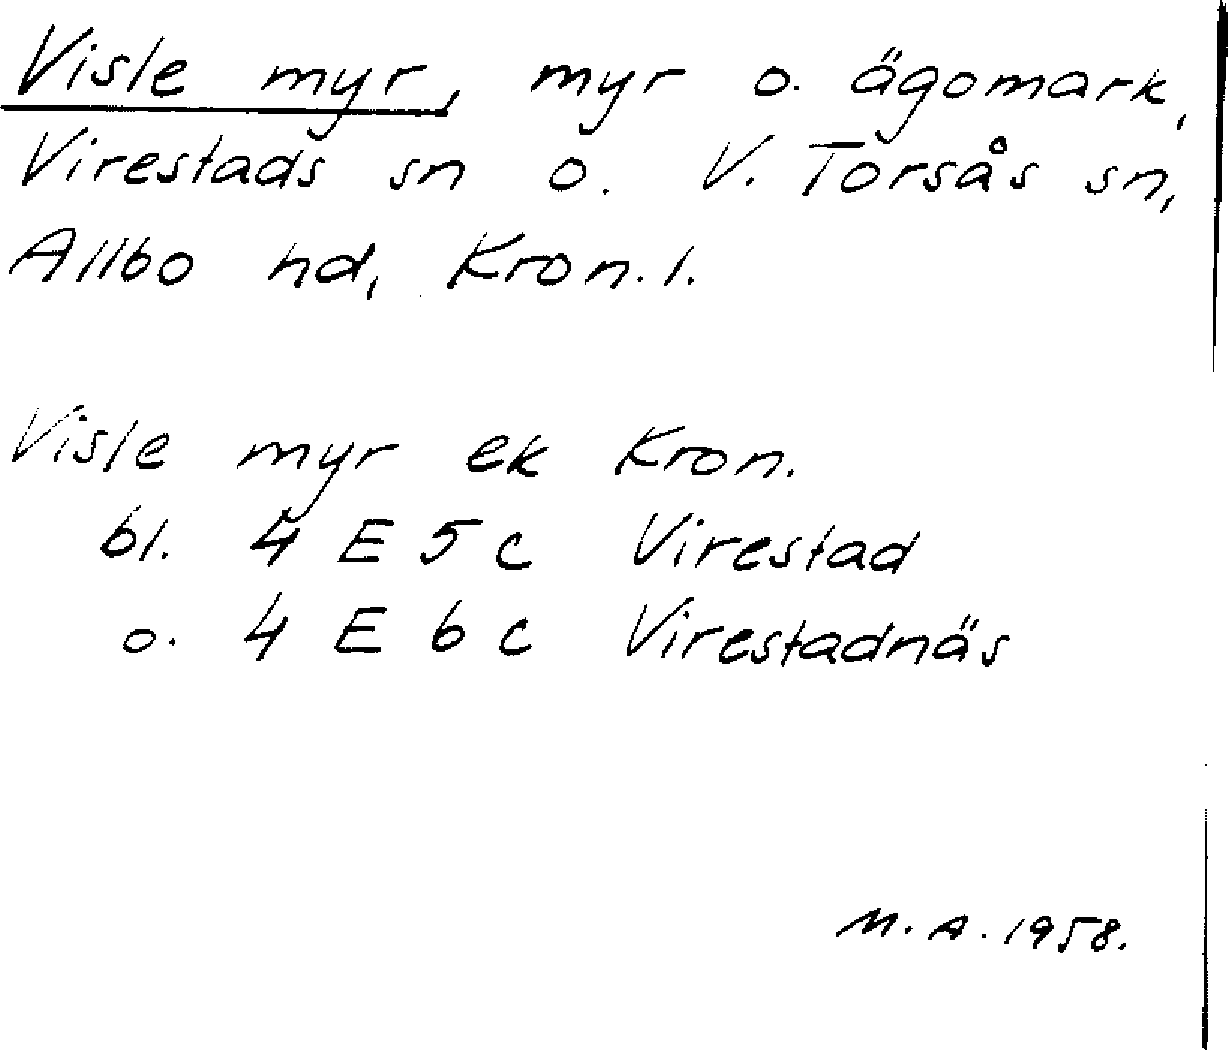 Visle myr, myr o. ägomark,
Virestads sn o. V. Torsås sn,
Allbo hd, Kron. l.
Visle myr ek Kron.
bl. 4 E 5 c Virestad
o. 4 E 6 c Virestadnäs
M. A. 1958.